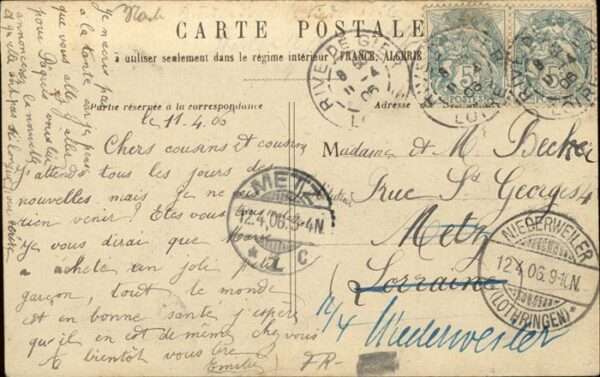 CARTE POSTALE
à utiliser seulement dans le régime intérieur (FRANCE, ALGÉRIE
Partie réservée à la correspondance
Adresse
le 11.4.06
Chers cousins et cousin
J'attends tous les jours des
nouvelles mais je ne
rien venir! Etes vous
Je vous dirai que Marie
a acheté un joli petit
garçon, tout le monde
est en bonne santé j'espère
qu'il en est de même chez vous
A bientôt vous lire
Emilie
Je n'écris pas
à la tante car je pense
que vous allez
pour Pâques vous lui
annoncerez la nouvelle
Madame et M. Becker
Rue St Georges 4
Metz
Lorraine
12/4 Niederweiler
RIVE DE GIER
LOIRE
11 4 06
5
5
METZ
12.4.06.3-4N
* 1 c
NIEDERWEILER
12.4.06.9-11.N.
(LOTHRINGEN)*
FR-